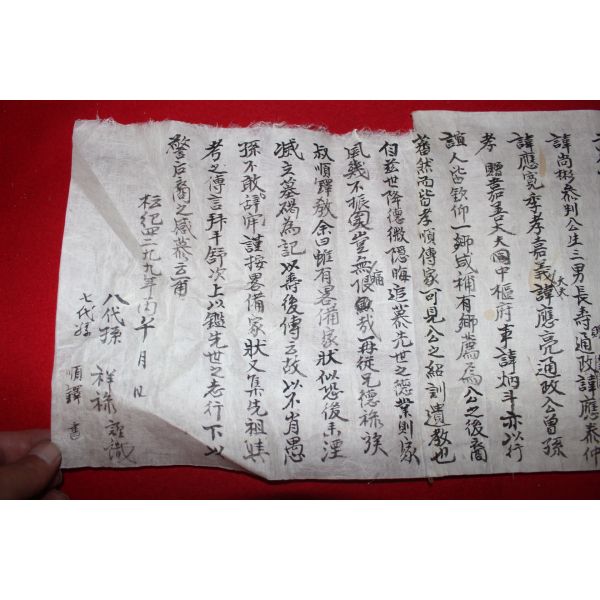 諱尚彬叅判公生三男長壽通政諱應泰仲
諱應亮季孝嘉義大夫諱應亮通政公曾孫
孝贈嘉善大夫同中樞府事諱炳斗亦以行
誼人皆欽仰一鄉咸補有鄉薦焉公之後裔
蕃然而皆孝順傳家可見公之紹訓遺敎也
自玆世降德微隱晦追慕先世之德業則家
風幾不振矣豈無痛恨哉再從兄德祿族
叔順鐸敎余曰雖有畧備家狀似恐後来湮
滅立墓碣為記以壽後傳云故以不肖愚
孫不敢辭牢謹按畧備家狀文集先祖
考之傳言拜手舒次上以鑑先世之志行下以
警后裔之感慕云爾
檀紀四二九九年丙午月日
八代孫 祥祿 謹識
七代孫 順鐸 書